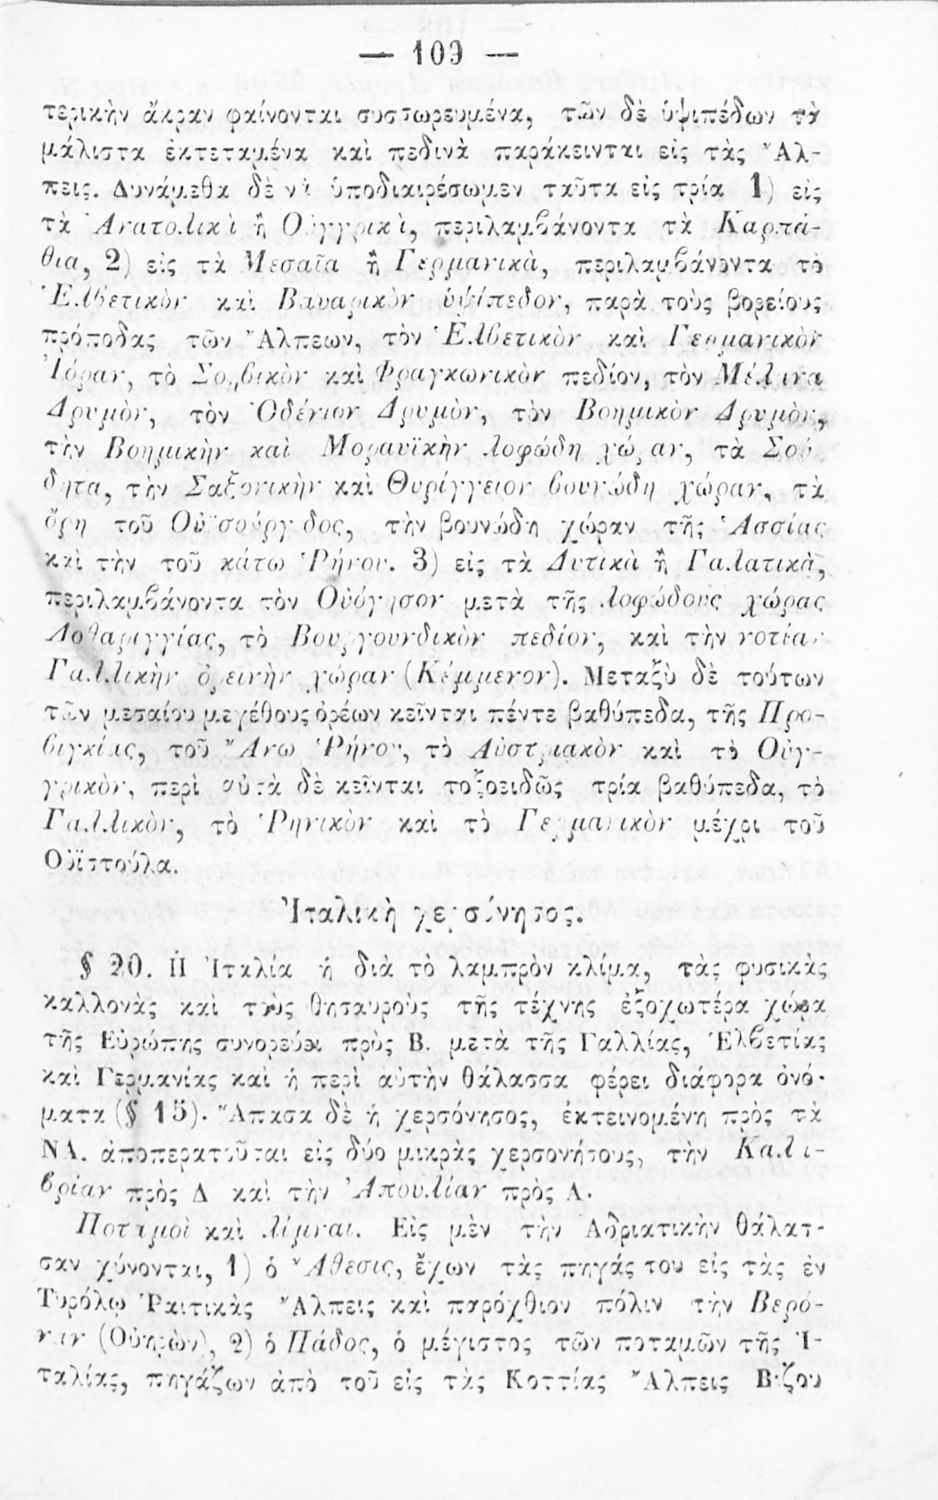 — 109 —
τερικὴν ἄκραν φαίνονται συσσωρευμένα, τῶν δὲ ὑψιπέδων τὰ
μάλιστα ἐκτεταμένα καὶ πεδινὰ παράκεινται εἰς τὰς Ἄλ-
πεις. Δυνάμεθα δὲ νὰ ὑποδιαιρέσωμεν ταῦτα εἰς τρία 1) εἰς
τὰ Ἀνατολικὰ ἢ Οὑγγρικὰ, περιλαμβάνοντα τὰ Καρπά-
θια, 2) εἰς τὰ Μεσαῖα ἢ Γερμανικὰ, περιλαμβάνοντα τὸ
Ἑλβετικὸν καὶ Βαυαρικὸν ὑψίπεδον, παρὰ τοὺς βορείους
πρόποδας τῶν Ἄλπεων, τὸν Ἑλβετικὸν καὶ Γερμανικὸν
Ἰόραν, τὸ Σουβικὸν καὶ Φραγκωνικὸν πεδίον, τὸν Μέλανα
Δρυμὸν, τὸν Ὀδένιον Δρυμὸν, τὸν Βοημικὸν Δρυμὸν,
τὴν Βοημικὴν καὶ Μοραυϊκὴν λοφώδη χώραν, τὰ Σού-
δητα, τὴν Σαξονικὴν καὶ Θυρίγγειον βουνώδη χώραν, τὰ
ὄρη τοῦ Οὐϊσούργιδος, τὴν βουνώδη χώραν τῆς Ἁσσίας
καὶ τὴν τοῦ κάτω Ῥήνου. 3) εἰς τὰ Δυτικὰ ἢ Γαλατικὰ,
περιλαμβάνοντα τὸν Οὐόγησον μετὰ τῆς λοφώδους χώρας
Λοθαριγγίας, τὸ Βουργουνδικὸν πεδίον, καὶ τὴν νοτίαν
Γαλλικὴν ὀρεινὴν χώραν (Κέμμενον). Μεταξὺ δὲ τούτων
τῶν μεσαίου μεγέθους ὀρέων κεῖνται πέντε βαθύπεδα, τῆς Προ-
βιγκίας, τοῦ Ἄνω Ῥήνου, τὸ Αὐστριακὸν καὶ τὸ Οὑγ-
γρικὸν, περὶ αὐτὰ δὲ κεῖνται τοξοειδῶς τρία βαθύπεδα, τὸ
Γαλλικὸν, τὸ Ῥηνικὸν καὶ τὸ Γερμανικὸν μέχρι τοῦ
Οὐϊστούλα.
Ἰταλικὴ χερσόνησος.
§ 20. Ἡ Ἰταλία ἡ διὰ τὸ λαμπρὸν κλίμα, τὰς φυσικὰς
καλλονὰς καὶ τοὺς θησαυροὺς τῆς τέχνης ἐξοχωτέρα χώρα
τῆς Εὐρώπης συνορεύει πρὸς Β. μετὰ τῆς Γαλλίας, Ἑλβετίας
καὶ Γερμανίας καὶ ἡ περὶ αὐτὴν θάλασσα φέρει διάφορα ὀνό-
ματα (§ 15). Ἅπασα δὲ ἡ χερσόνησος, ἐκτεινομένη πρὸς τὰ
ΝΑ. ἀποπερατοῦται εἰς δύο μικρὰς χερσονήσους, τὴν Καλα-
βρίαν πρὸς Δ καὶ τὴν Ἀπουλίαν πρὸς Α.
Ποταμοὶ καὶ λίμναι. Εἰς μὲν τὴν Ἀδριατικὴν θάλασ-
σαν χύνονται, 1) ὁ Ἄθεσις, ἔχων τὰς πηγάς του εἰς τὰς ἐν
Τυρόλῳ Ῥαιτικὰς Ἄλπεις καὶ παρόχθιον πόλιν τὴν Βερό-
ναν (Οὐηρών), 2) ὁ Πάδος, ὁ μέγιστος τῶν ποταμῶν τῆς Ἰ-
ταλίας, πηγάζων ἀπὸ τοῦ εἰς τὰς Κοττίας Ἄλπεις Βίζου